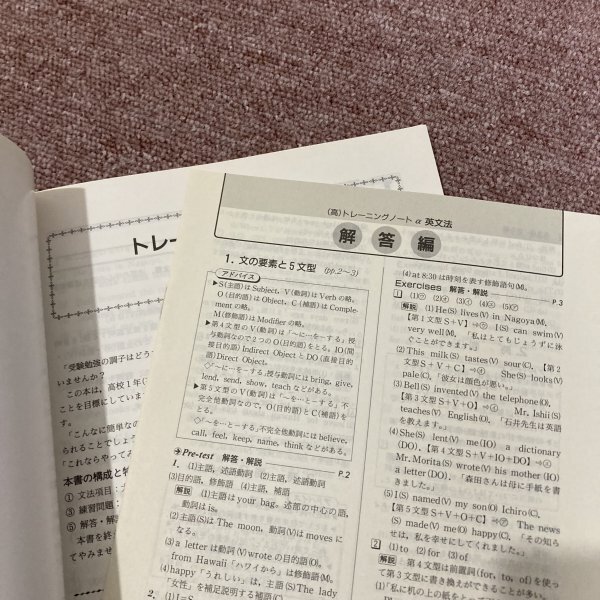 トレー
「受験勉強の調子はどう
いませんか？
この本は，高校1年(
ことを目標にしていま
「こんなに簡単な
られることでしょ
「これならやってみ
本書の構成と特
① 文法項目：
③ 練習問題：
⑤ 解答・解説
本書を終
てやみませ
(高)トレーニングノート α 英文法
解答編
1. 文の要素と5文型 (pp.2〜3)
アドバイス
▶S(主語)は Subject, V(動詞)は Verb の略。
O(目的語)は Object, C(補語)は Comple-
ment の略。
M(修飾語)は Modifier の略。
▶第4文型のV(動詞)は「〜に…をする」授
与動詞なので2つのO(目的語)をとる。IO(間
接目的語) Indirect Object と DO(直接目的
語) Direct Object。
◇「〜に…を〜する」授与動詞には bring, give,
lend, send, show, teach などがある。
▶第5文型のV(動詞)は「〜を…とする」不
完全他動詞なので，O(目的語)とC(補語)を
とる。
◇「〜を…とする」不完全他動詞には believe,
call, feel, keep, name, think などがある。
Pre-test 解答・解説 P.2
1. (1)主語，述語動詞 (2)主語，述語動詞
(3)目的語，修飾語 (4)主語，補語
解説 (1)主語は your bag。述部の中心の語，
動詞は is。
(2)主語(S)は The moon, 動詞(V)は moves に
なる。
(3) a letter は動詞(V) wrote の目的語(O)。
from Hawaii「ハワイから」は修飾語(M)。
(4) happy「うれしい」は，主語(S) The lady
「女性」を補足説明する補語(C)。
2. (1) I=S
(4) at 8:30 は時刻を表す修飾語句(M)。
Exercises 解答・解説 P.3
1 (1)㋐ (2)㋓ (3)㋑ (4)㋓ (5)㋐
解説 (1) He(S) lives(V) in Nagoya(M).
【第1文型 S+V】⇨㋐ I(S) can swim(V)
very well(M). 「私はとてもじょうずに泳
ぐことができます。」
(2) This milk(S) tastes(V) sour(C). 【第2
文型 S+V+C】⇨㋓ She(S) looks(V)
pale(C). 「彼女は顔色が悪い。」
(3) Bell(S) invented(V) the telephone(O).
【第3文型 S+V+O】⇨㋑ Mr. Ishii(S)
teaches(V) English(O). 「石井先生は英語
を教えます。」
(4) She(S) lent(V) me(IO) a dictionary
(DO). 【第4文型 S+V+IO+DO】⇨㋓
Mr. Morita(S) wrote(V) his mother(IO)
a letter(DO). 「森田さんは母に手紙を書
きました。」
(5) I(S) named(V) my son(O) Ichiro(C).
【第5文型 S+V+O+C】⇨㋐ The news
(S) made(V) me(O) happy(C). 「その知ら
せは，私を幸せにしてくれました。」
2 (1) to (2) for (3) of
解説 第4文型は前置詞(for, to, of)を使っ
て第3文型に書き換えができることが多い。
(1)「私に机の上の紙をとって